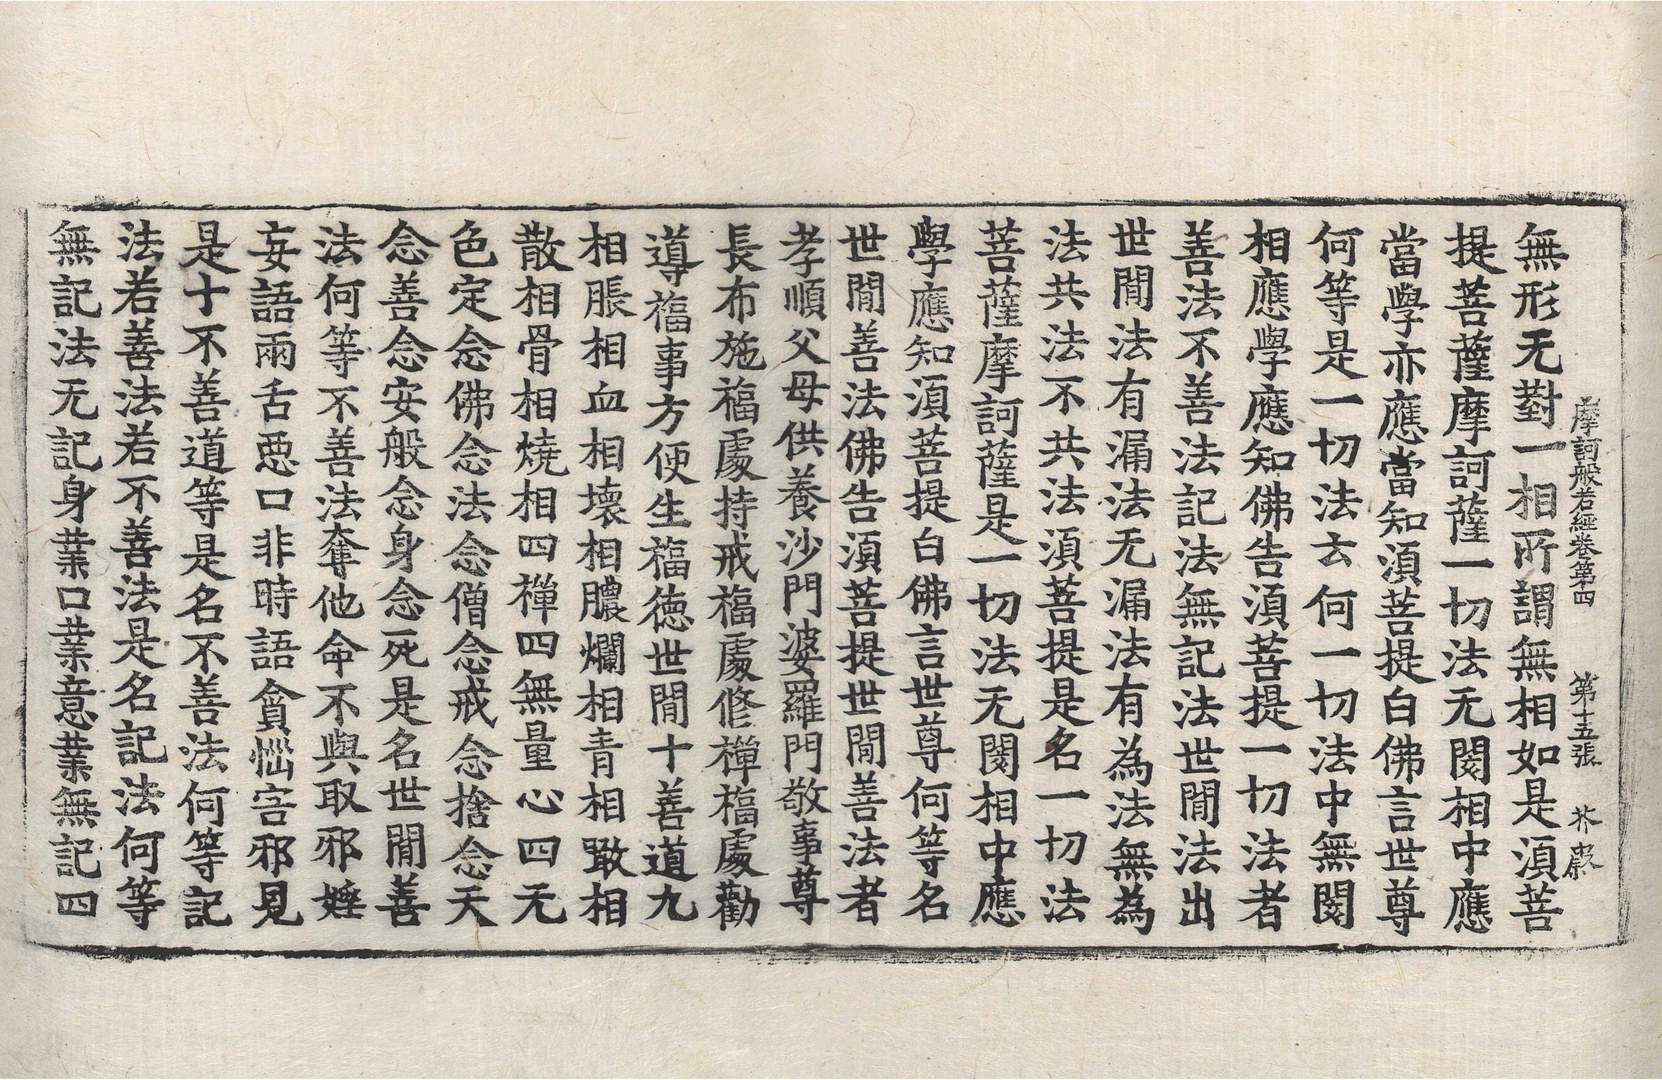 摩訶般若經卷第四 第十五張 芥
無形无對一相所謂無相如是須菩
提菩薩摩訶薩一切法无閡相中應
當學亦應當知須菩提白佛言世尊
何等是一切法云何一切法中無閡
相應學應知佛告須菩提一切法者
善法不善法記法無記法世閒法出
世閒法有漏法无漏法有為法無為
法共法不共法須菩提是名一切法
菩薩摩訶薩是一切法无閡相中應
學應知須菩提白佛言世尊何等名
世閒善法佛告須菩提世閒善法者
孝順父母供養沙門婆羅門敬事尊
長布施福處持戒福處修禪福處勸
導福事方便生福德世閒十善道九
相脹相血相壞相膿爛相青相噉相
散相骨相燒相四禪四無量心四无
色定念佛念法念僧念戒念捨念天
念善念安般念身念死是名世閒善
法何等不善法奪他命不與取邪婬
妄語兩舌惡口非時語貪惱害邪見
是十不善道等是名不善法何等記
法若善法若不善法是名記法何等
無記法无記身業口業意業無記四